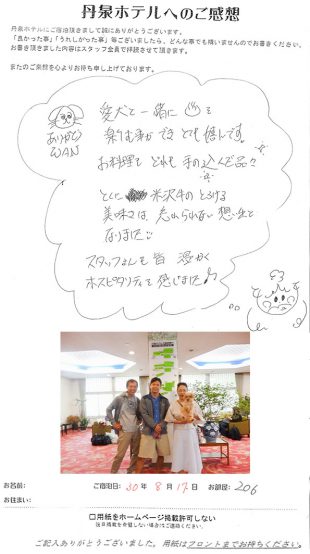 丹泉ホテルへのご感想
丹泉ホテルにご宿泊頂きまして誠にありがとうございます。
「良かった事」「うれしかった事」等ございましたら、どんな事でも構いませんのでお書きください。
お書き頂きました内容はスタッフ全員で拝読させて頂きます。
またのご来館を心よりお待ち申し上げております。
ありがとう
WAN
愛犬と一緒に ♨を
楽しむ事ができ とても嬉しんです。
お料理も どれも 手の込んだ品々
とくに 米沢牛の とろける
美味さは 忘れられない 想い出と
なりました
スタッフさんも皆 温かく
ホスピタリティを 感じました♪
お名前:
ご宿泊日: 30 年 8 月 17 日
お部屋: 206
お住まい:
□用紙をホームページ掲載許可しない
ご記入ありがとうございました。用紙はフロントまでお持ちください。